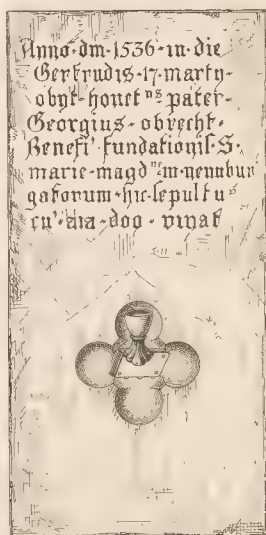 Anno·dm·1536·in·die
Gertrudis·17·marty-
obyt·honet ᵈⁿˢ pater-
Georgius·obrecht·
Benefi'·fundationis·S·
marie·magd ⁿᵉ in·nennbur
gatorum·hic·sepultuˢ
cu'·aia·doo·vivat